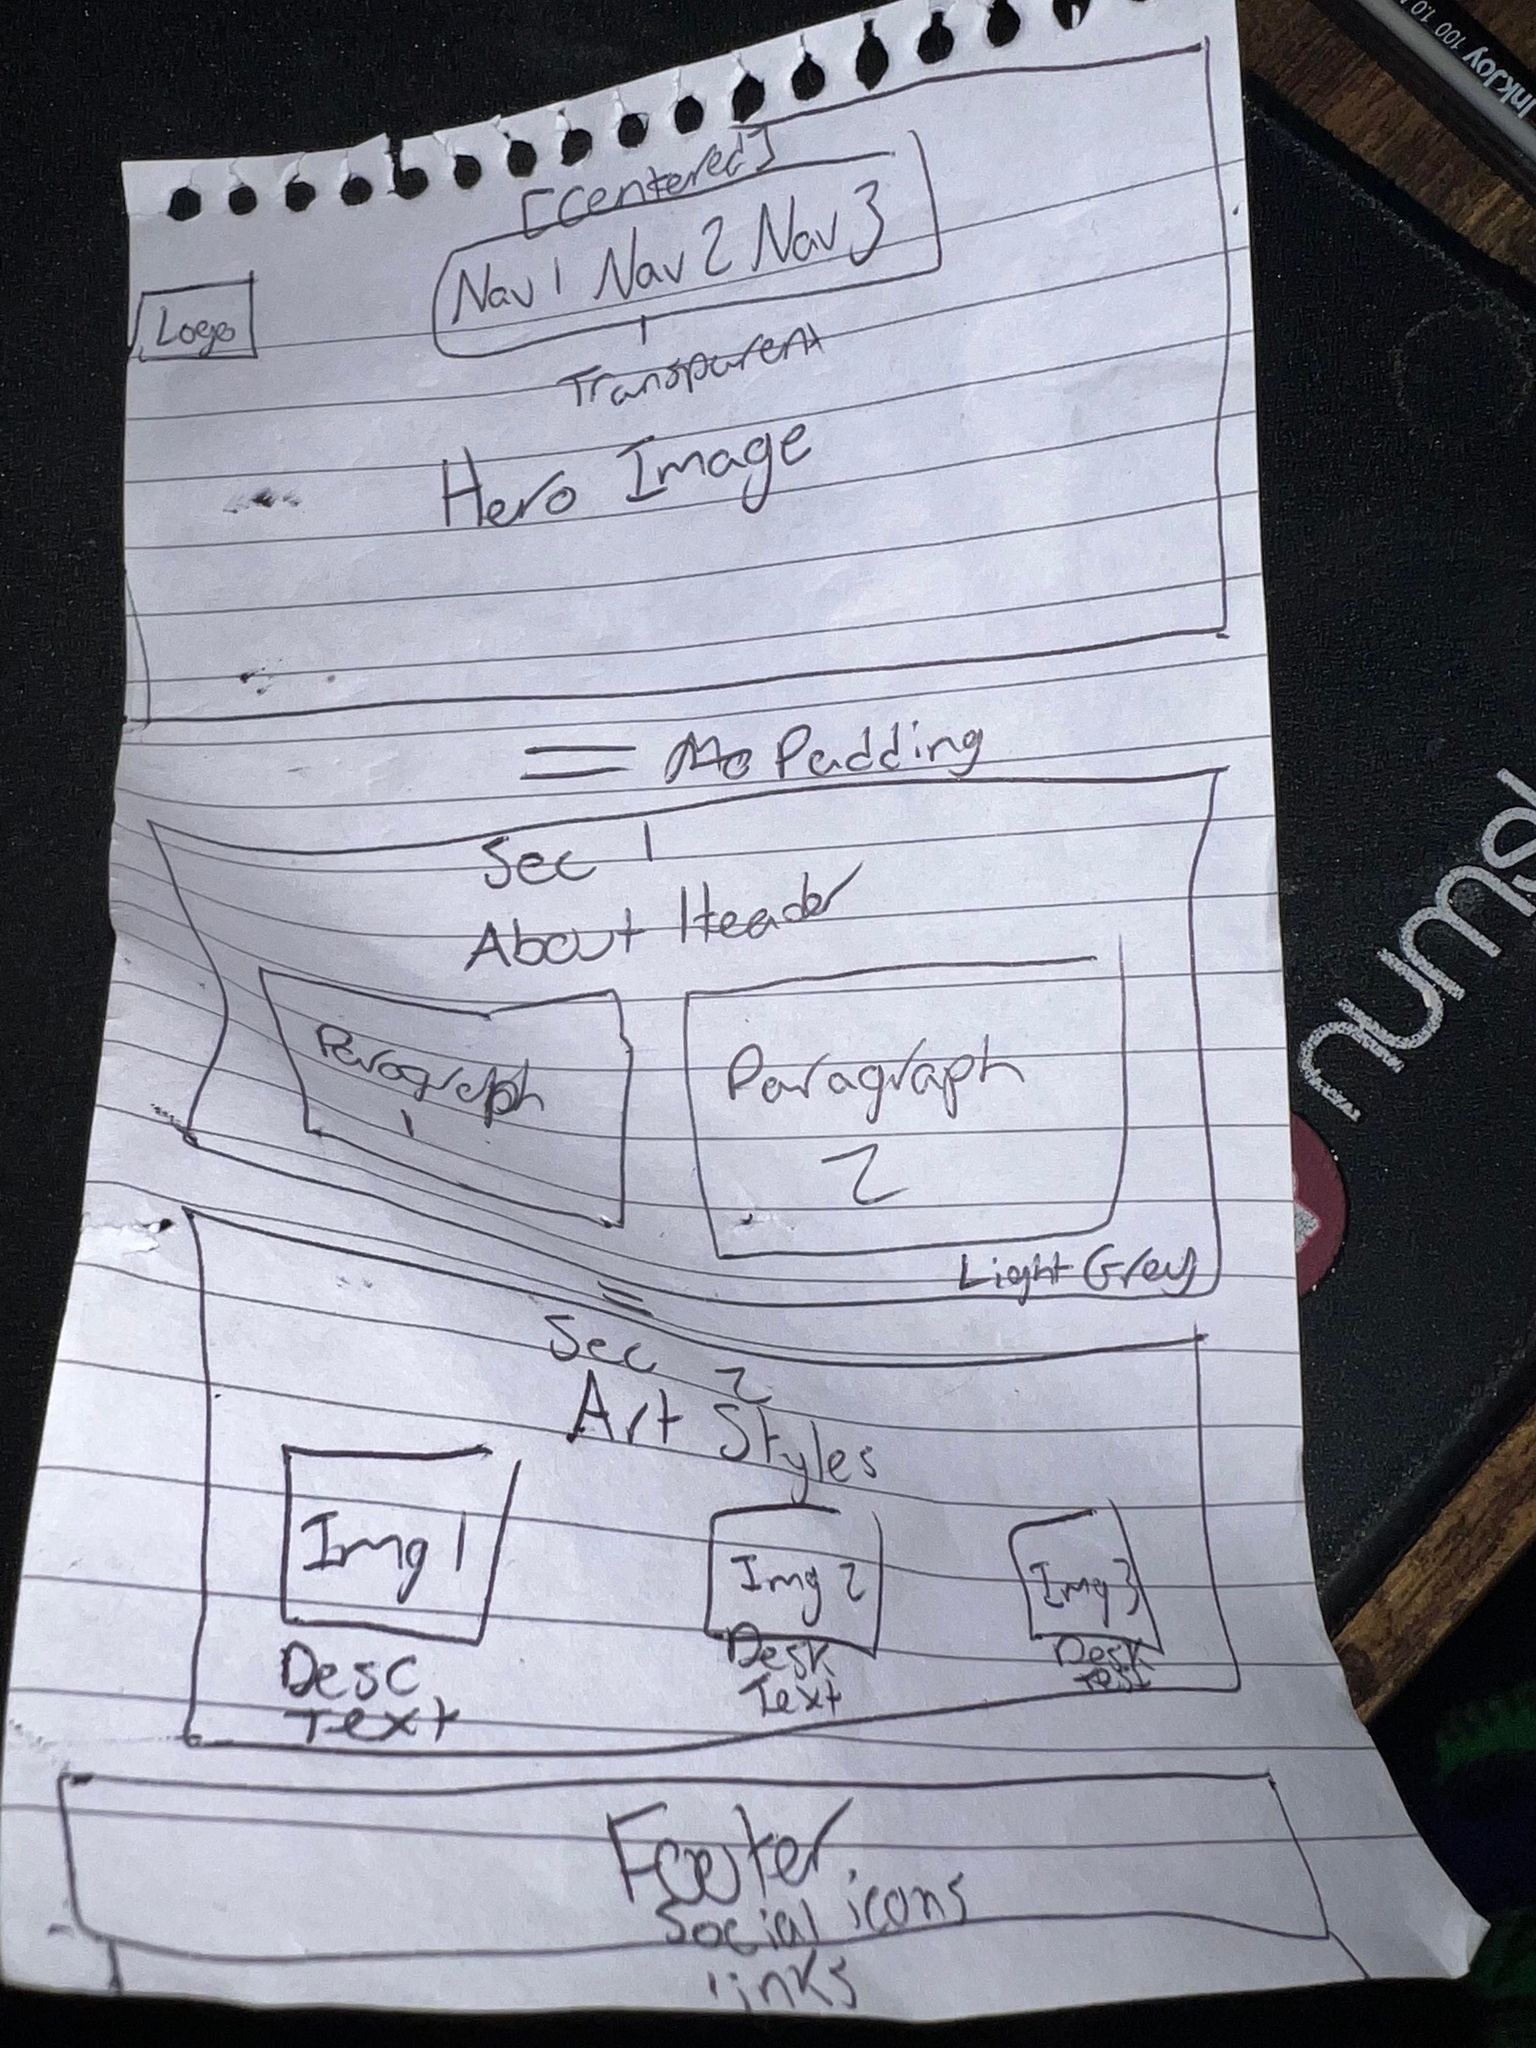 [Centered]
Nav 1 Nav 2 Nav 3
Logo
Transparent
Hero Image
= No Padding
Sec 1
About Header
Paragraph
1
Paragraph
2
Light Grey
=
Sec 2
Art Styles
Img 1
Img 2
Img 3
Desc
Text
Desk
Text
Desk
Text
Footer
Social icons
links
InkJoy 100 1.0
numsk